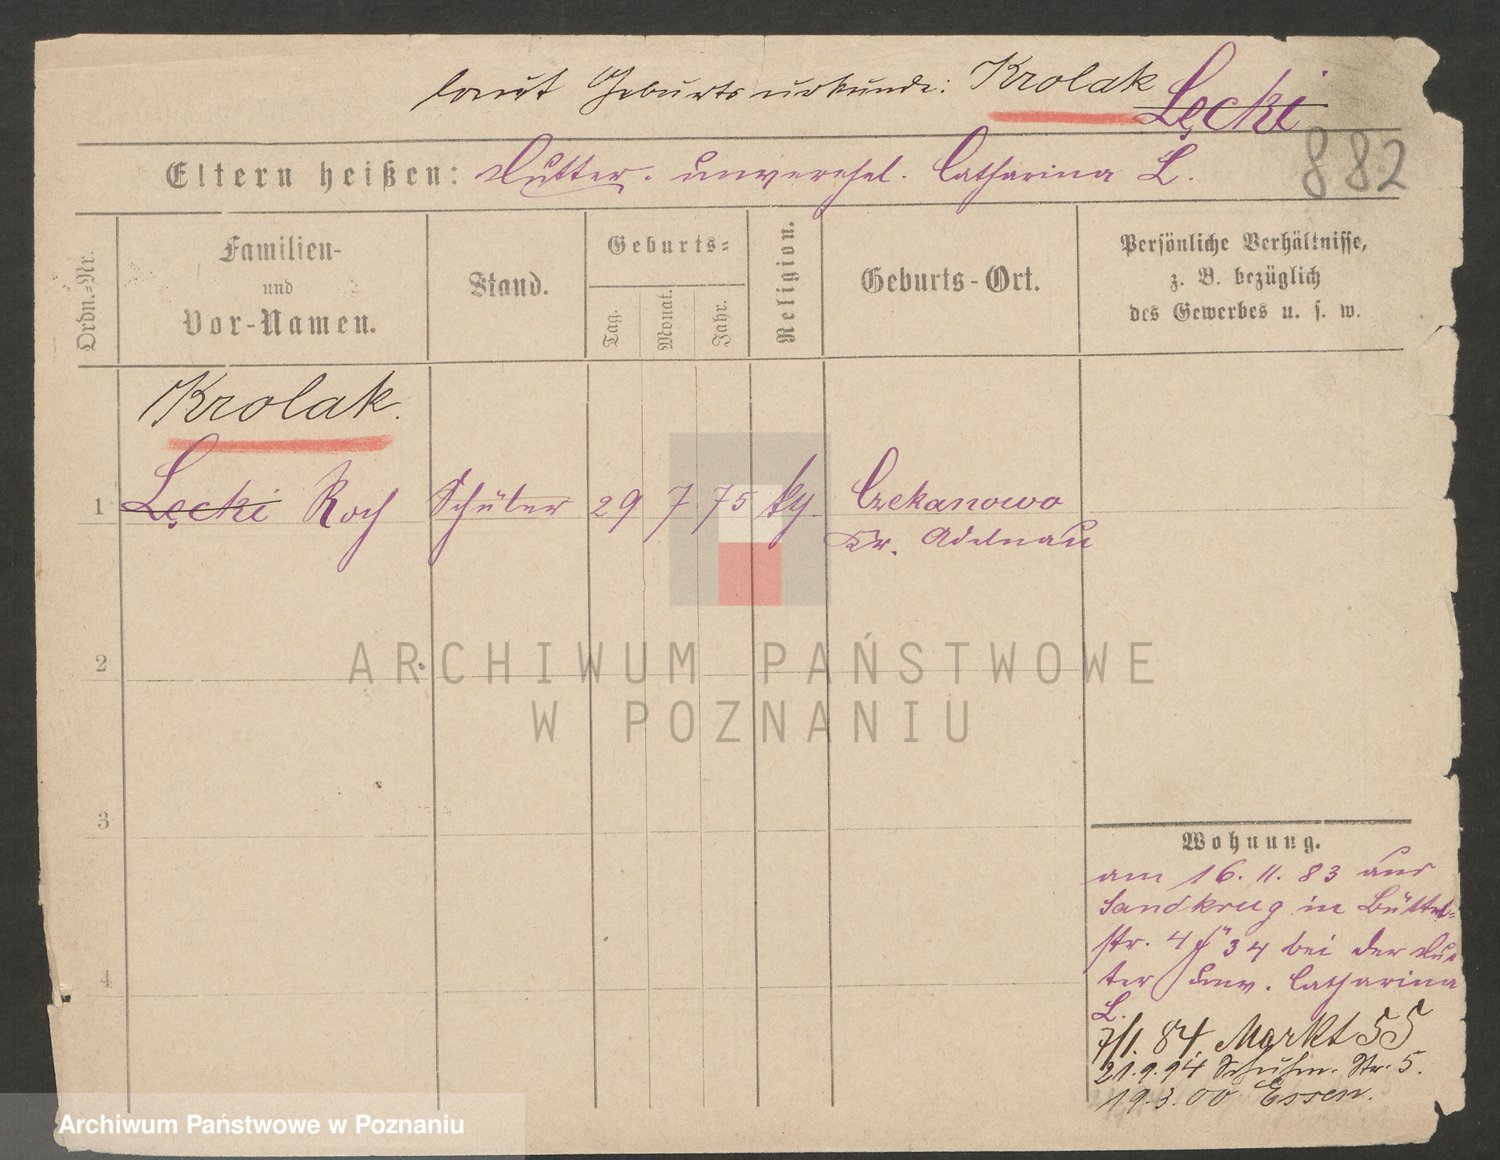 laut Geburtsurkunde: Krolak Lęcki
Eltern heißen: Mutter. unverehel. Catharina L.
882
Ordn.-Nr.
Familien-
und
Vor-Namen.
Stand.
Geburts-
Tag.
Monat.
Jahr.
Religion.
Geburts-Ort.
Persönliche Verhältnisse,
z. B. bezüglich
des Gewerbes u. s. w.
Krolak.
1 Lęcki Roch Schüler 29 7 75 Czekanowo
Kr. Adelnau
ARCHIWUM PAŃSTWOWE
W POZNANIU
2
3
4
Wohnung.
am 16. 11. 83 aus
Sandkrug in Büttel-
str. 34 bei der Mut
ter unv. Catharina
L.
7/1. 84. Markt 55
21.9.94 Schuhm. Str. 5.
19.3.00 Essen.
Archiwum Państwowe w Poznaniu